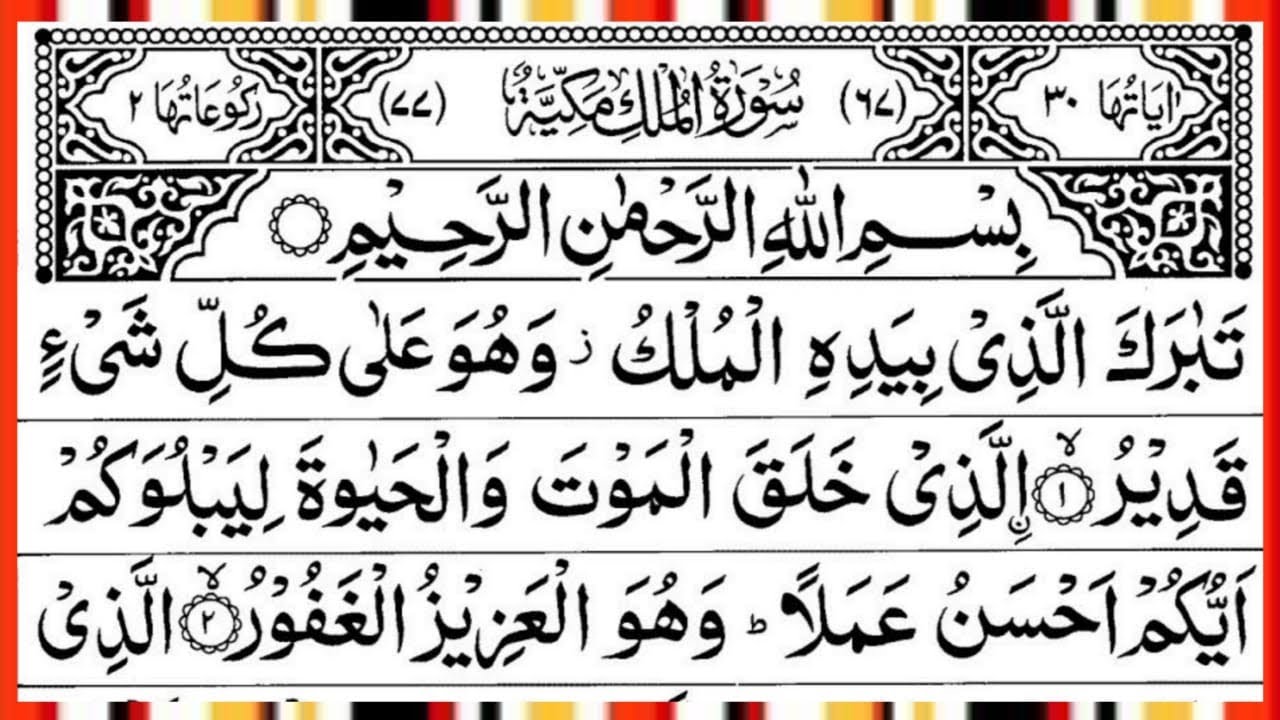 اٰيَاتُهَا ٣٠ (٦٧) سُوْرَةُ الْمُلْكِ مَكِّيَّةٌ (٧٧) رُكُوْعَاتُهَا ٢
بِسْمِ اللّٰهِ الرَّحْمٰنِ الرَّحِيْمِ
تَبٰرَكَ الَّذِىْ بِيَدِهِ الْمُلْكُ ز وَهُوَ عَلٰى كُلِّ شَىْءٍ
قَدِيْرُ ۙ‏﴿١﴾ نِ الَّذِىْ خَلَقَ الْمَوْتَ وَالْحَيٰوةَ لِيَبْلُوَكُمْ
اَيُّكُمْ اَحْسَنُ عَمَلًا ؕ وَهُوَ الْعَزِيْزُ الْغَفُوْرُ ۙ‏﴿٢﴾ الَّذِىْ